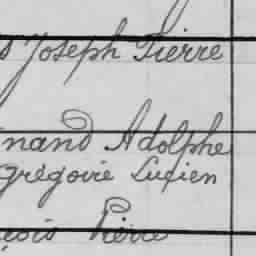 s Joseph Pierre
nand Adolphe
Grégoire Lucien
çois Pierre